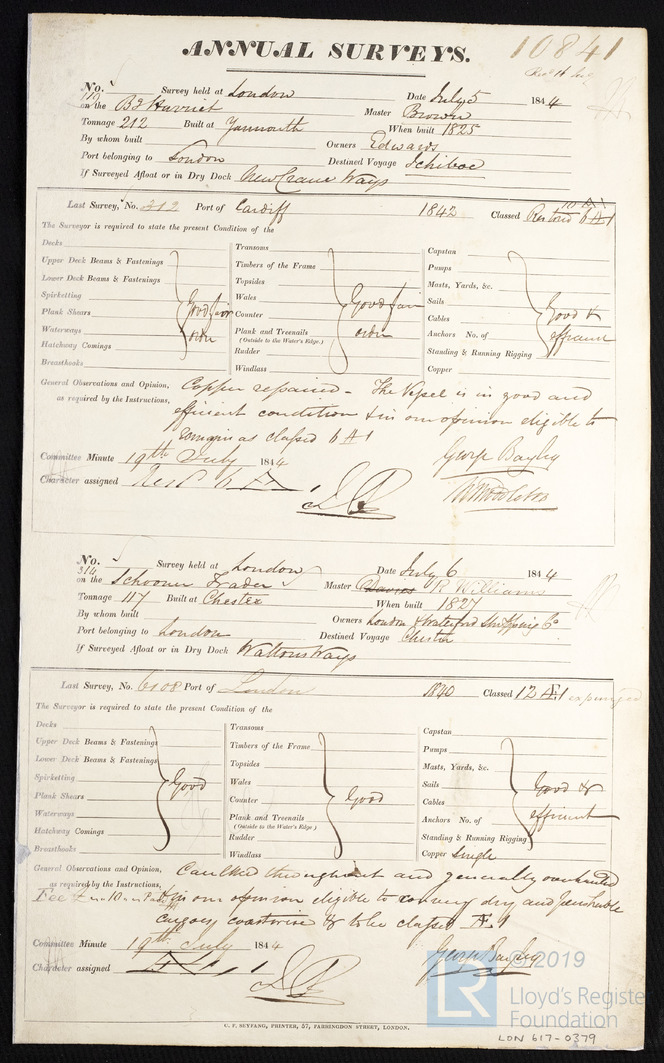 ANNUAL SURVEYS. 10841
No. 119 Survey held at London Date July 5 1844
on the Bg Harriet Master Brown
Tonnage 212 Built at Yarmouth When built 1825
By whom built Owners Edwards
Port belonging to London Destined Voyage Ichiboe
If Surveyed Afloat or in Dry Dock New Crane Ways
Last Survey, No. 312 Port of Cardiff 1842 Classed Restored 6 A1
The Surveyor is required to state the present Condition of the
Decks Transoms Capstan
Upper Deck Beams & Fastenings Timbers of the Frame Pumps
Lower Deck Beams & Fastenings Topsides Masts, Yards, &c.
Spirketting Wales Sails
Plank Shears Good fair Counter Good fair Cables Good &
Waterways order Plank and Treenails order Anchors No. of efficient
(Outside to the Water's Edge.)
Hatchway Comings Rudder Standing & Running Rigging
Breasthooks Windlass Copper
General Observations and Opinion, Copper repaired - The Vessel is in good and
as required by the Instructions, efficient condition & in our opinion eligible to
remain as classed 6 A1
Committee Minute 19th July 1844 George Bayley
Character assigned
No. 314 Survey held at London Date July 6 1844
on the Schooner Trader Master Davies R Williams
Tonnage 117 Built at Chester When built 1827
By whom built Owners London & Waterford Shipping Co
Port belonging to London Destined Voyage Chester
If Surveyed Afloat or in Dry Dock Waltons Ways
Last Survey, No. 6108 Port of London 1840 Classed 12 Æ1 expunged
The Surveyor is required to state the present Condition of the
Decks Transoms Capstan
Upper Deck Beams & Fastenings Timbers of the Frame Pumps
Lower Deck Beams & Fastenings Topsides Masts, Yards, &c.
Spirketting Good Wales Sails Good &
Plank Shears Counter Good Cables
Waterways Plank and Treenails Anchors No. of efficient
(Outside to the Water's Edge.)
Hatchway Comings Rudder Standing & Running Rigging
Breasthooks Windlass Copper Single
General Observations and Opinion, Caulked throughout and generally overhauled
as required by the Instructions, & in our opinion eligible to convey dry and perishable
cargoes coastwise & to be classed Æ 1
Committee Minute 19th July 1844 George Bayley
Character assigned
© 2019
LR Lloyd's Register
Foundation
C. F. SEYFANG, PRINTER, 57, FARRINGDON STREET, LONDON.
LON 617-0379